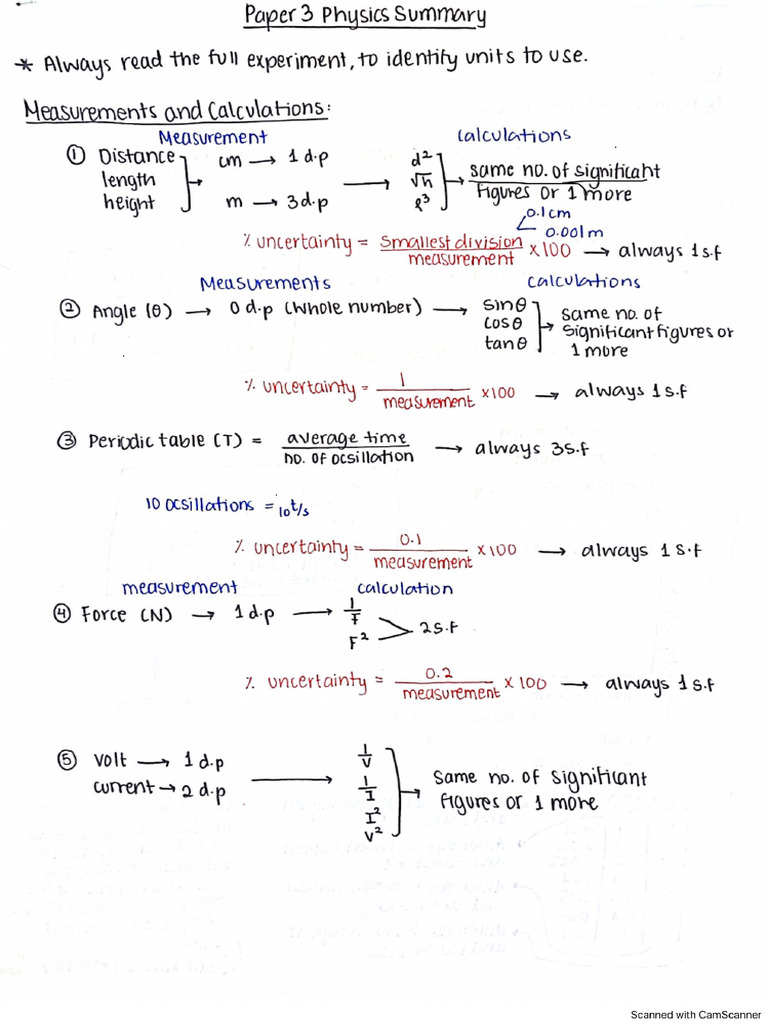 Paper 3 Physics Summary
* Always read the full experiment, to identify units to use.
Measurements and Calculations:
Measurement Calculations
① Distance cm → 1 d.p d²
length → → √h → same no. of significant
height m → 3 d.p ℓ³ figures or 1 more
0.1 cm
0.001 m
% uncertainty = smallest division / measurement × 100 → always 1 s.f
Measurements Calculations
② Angle (θ) → 0 d.p (Whole number) → sinθ same no. of
cosθ → significant figures or
tanθ 1 more
% uncertainty = 1 / measurement × 100 → always 1 s.f
③ Periodic table (T) = average time / no. of ocsillation → always 3 s.f
10 ocsillations = 10 t/s
% uncertainty = 0.1 / measurement × 100 → always 1 s.f
measurement calculation
④ Force (N) → 1 d.p → 1/F
F² > 2 s.f
% uncertainty = 0.2 / measurement × 100 → always 1 s.f
⑤ Volt → 1 d.p 1/V
current → 2 d.p → 1/I → Same no. of significant
I² figures or 1 more
V²
Scanned with CamScanner